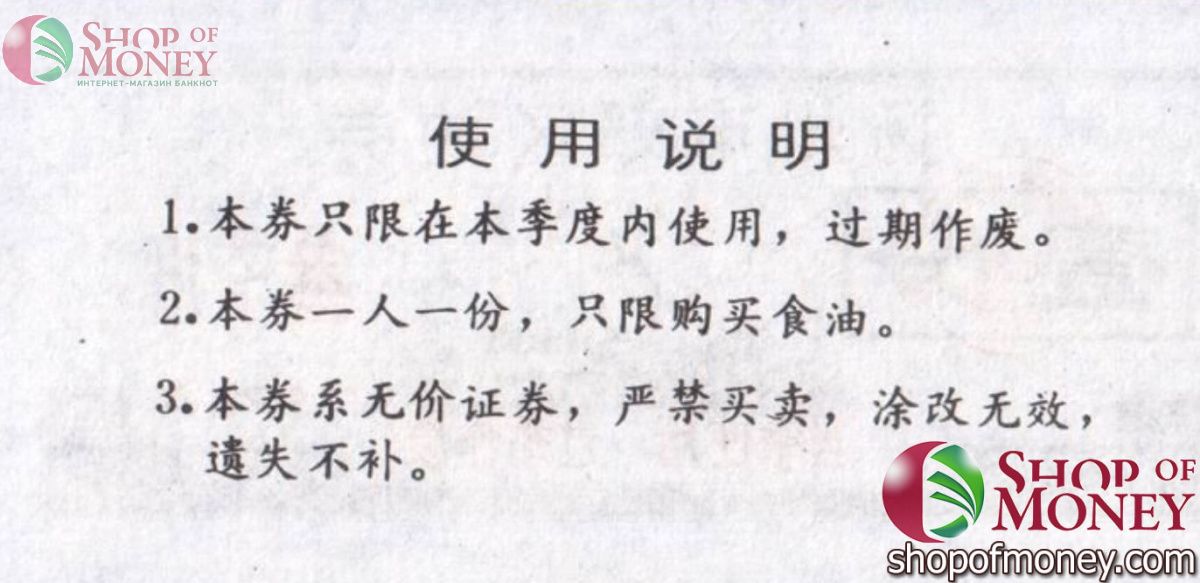 SHOP OF
MONEY
ИНТЕРНЕТ-МАГАЗИН БАНКНОТ
使用说明
1.本券只限在本季度内使用，过期作废。
2.本券一人一份，只限购买食油。
3.本券系无价证券，严禁买卖，涂改无效，
遗失不补。
SHOP OF
MONEY
shopofmoney.com